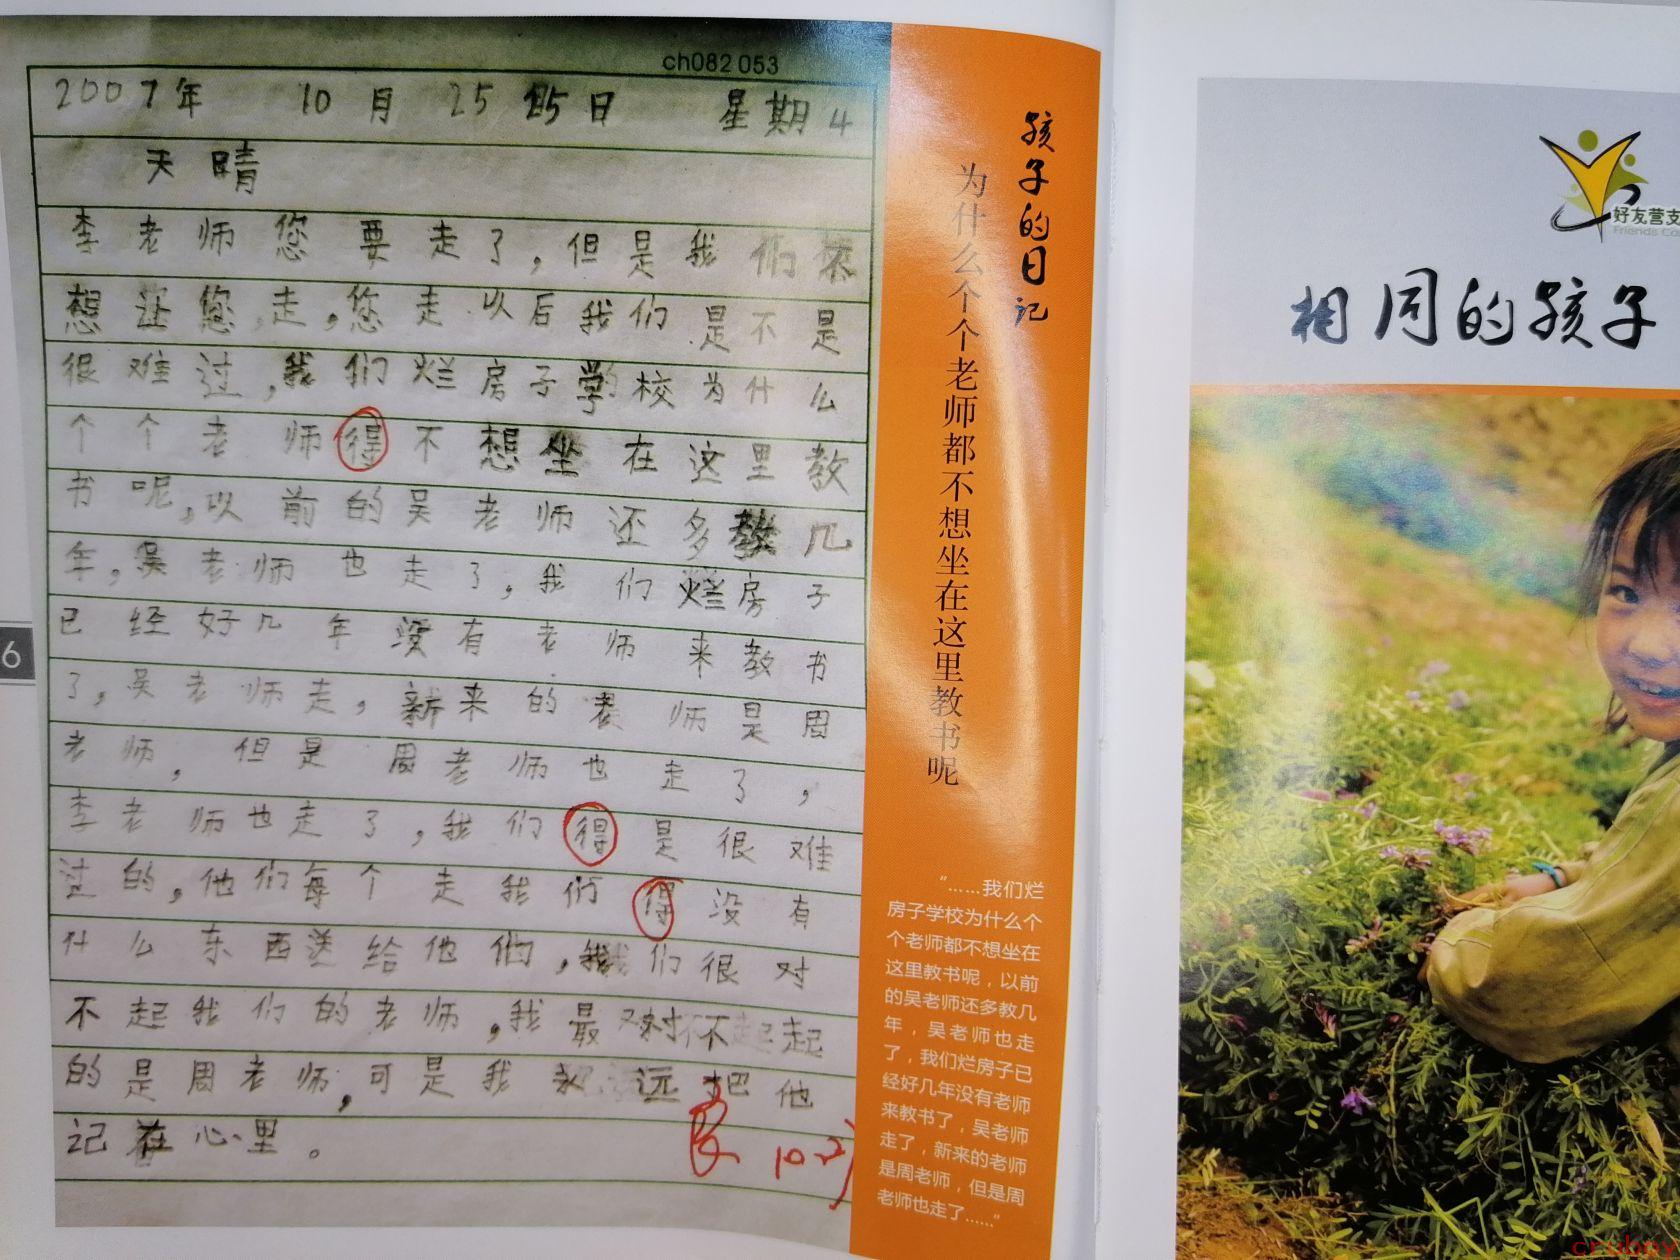 ch082 053
2007年 10月 25 25日 星期4
天晴
李老师您要走了,但是我们不
想让您走,您走以后我们是不是
很难过,我们烂房子学校为什么
个个老师得不想坐在这里教
书呢,以前的吴老师还多教几
年,吴老师也走了,我们烂房子
已经好几年没有老师来教书
了,吴老师走,新来的老师是周
老师,但是周老师也走了,
李老师也走了,我们得是很难
过的,他们每个走我们得没有
什么东西送给他们,我们很对
不起我们的老师,我最对不起
的是周老师,可是我永远把他
记在心里。
良 10.27
6
孩子的日记
为什么个个老师都不想坐在这里教书呢
“……我们烂
房子学校为什么个
个老师都不想坐在
这里教书呢，以前
的吴老师还多教几
年，吴老师也走
了，我们烂房子已
经好几年没有老师
来教书了，吴老师
走了，新来的老师
是周老师，但是周
老师也走了……”
好友营支
Friends Ca
相同的孩子